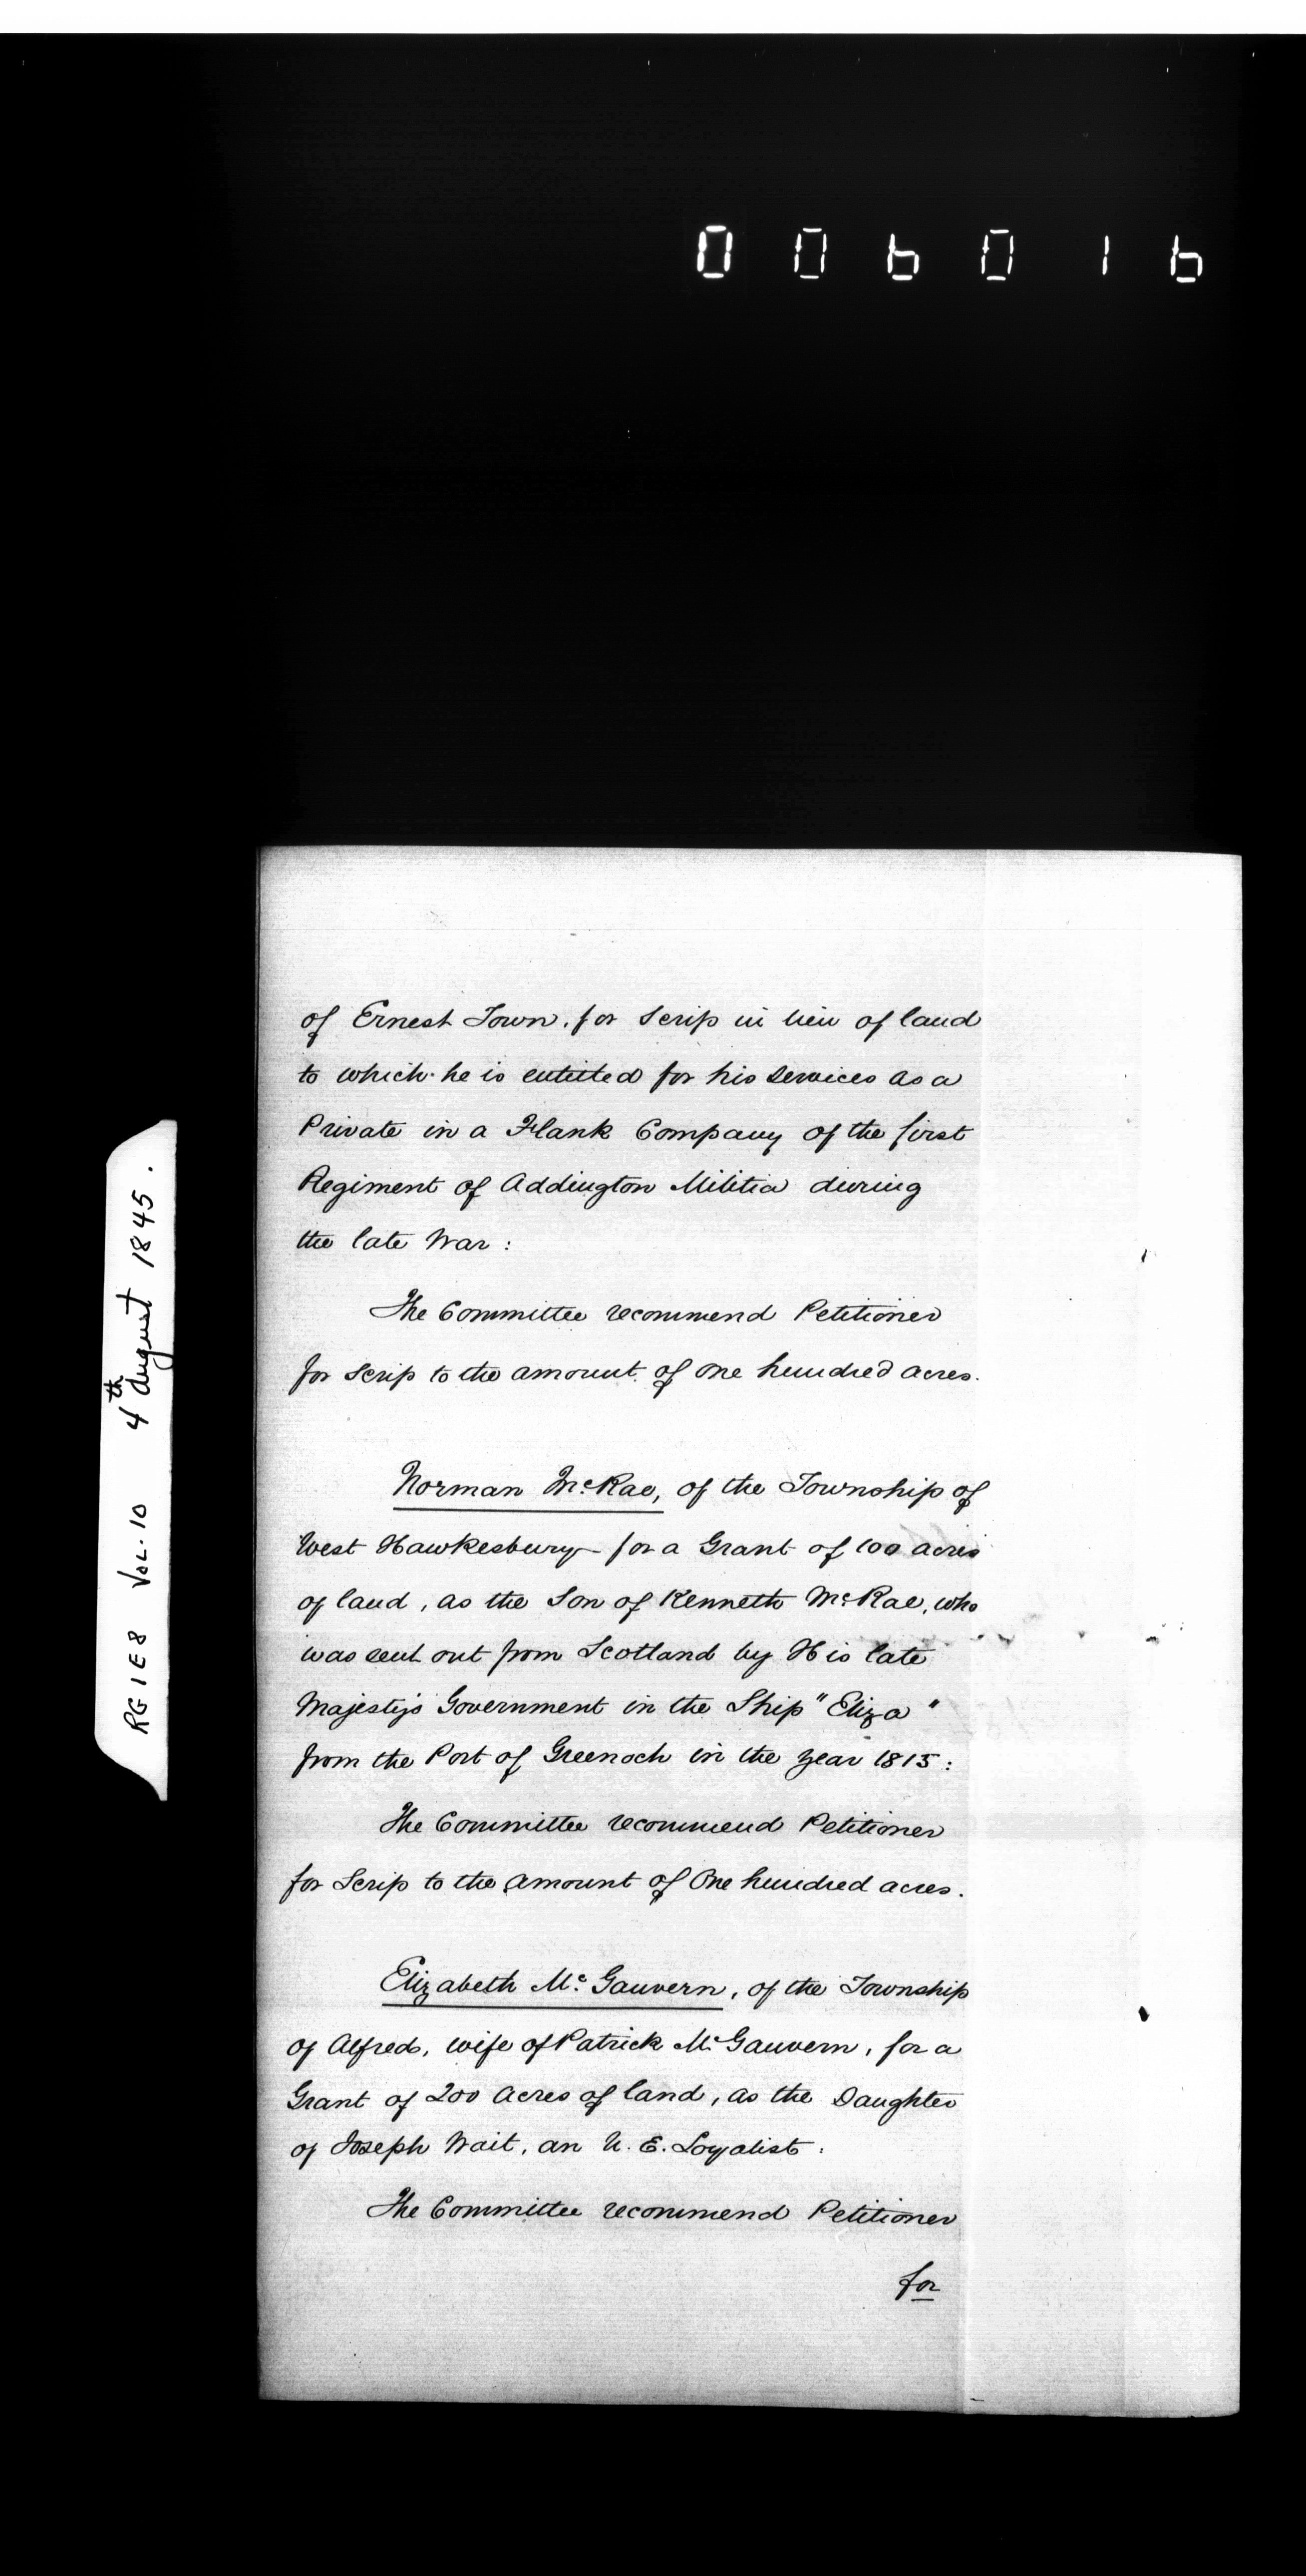 006016
RG 1 E 8 VOL. 10 4th August 1845.
of Ernest Town, for Scrip in lieu of land
to which he is entitled for his services as a
Private in a Flank Company of the first
Regiment of Addington Militia during
the late War :
The Committee recommend Petitioner
for Scrip to the amount of One hundred acres.
Norman McRae, of the Township of
West Hawkesbury for a Grant of 100 acres
of land, as the Son of Kenneth McRae, who
was sent out from Scotland by His late
Majesty's Government in the Ship "Eliza"
from the Port of Greenoch in the year 1815 :
The Committee recommend Petitioner
for Scrip to the amount of One hundred acres.
Elizabeth Mc Gauvern, of the Township
of Alfred, wife of Patrick Mc Gauvern, for a
Grant of 200 Acres of land, as the Daughter
of Joseph Wait, an U. E. Loyalist :
The Committee recommend Petitioner
for